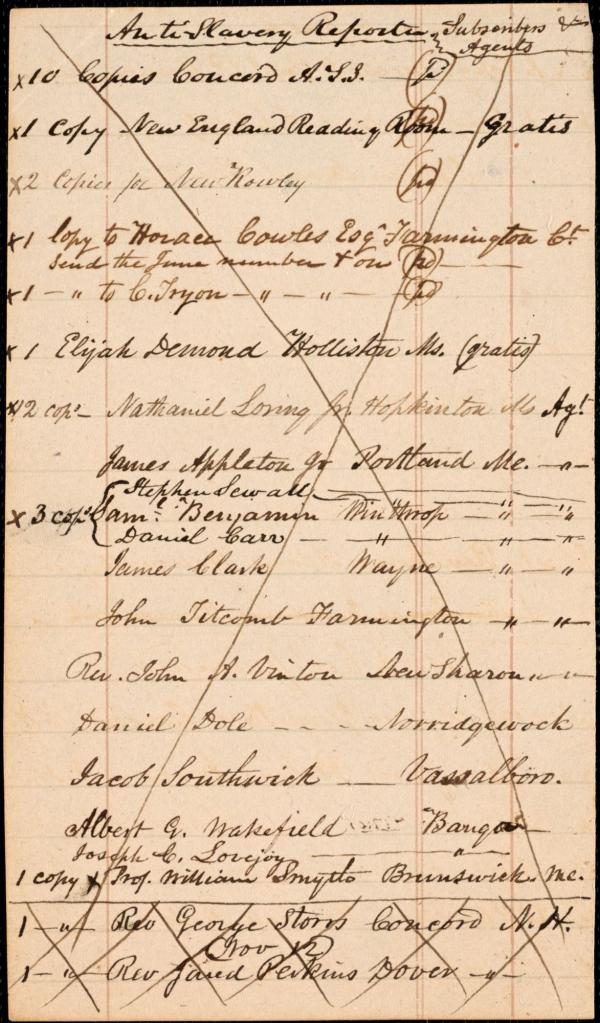 Anti-Slavery Reporter, Subscribers &
Agents
x 10 Copies Concord A.S.S. — pd
x 1 Copy New England Reading Room — Gratis
x 2 Copies for New Rowley pd
x 1 Copy to Horace Cowles Esqr Farmington Ct.
Send the June number & on pd —
x 1 — " to C. Tryon — " — " — pd
x 1 Elijah Demond Holliston Ms. (gratis)
x 12 cops — Nathaniel Loring Jr. Hopkinton Ms Agt.
James Appleton Portland Me. — "
Stephen Sewall — " — " — "
x 3 cops Saml. Benjamin Winthrop — " — "
Daniel Carr — " — " — "
James Clark Wayne — " — "
John Titcomb Farmington — " — "
Rev. John A. Vinton New Sharon " — "
Daniel Dole - - - Norridgewock
Jacob Southwick — Vassalboro.
Albert G. Wakefield Bangor
Joseph C. Lovejoy — "
1 copy x Prof. William Smyth Brunswick Me.
1 — " — Rev George Storrs Concord N. H.
(Nov 12)
1 — " — Rev Jared Perkins Dover — " —